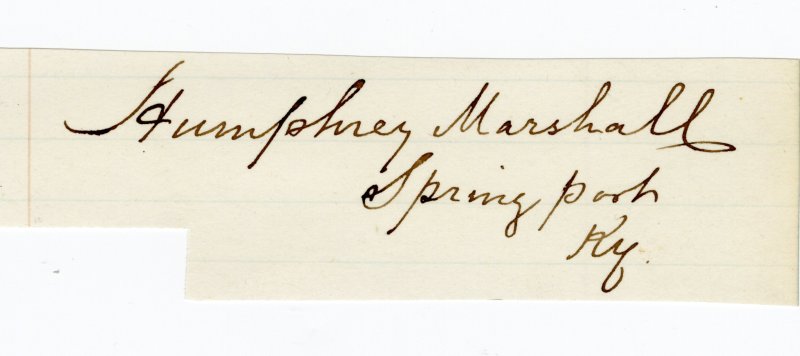 Humphrey Marshall
Spring port
Ky.